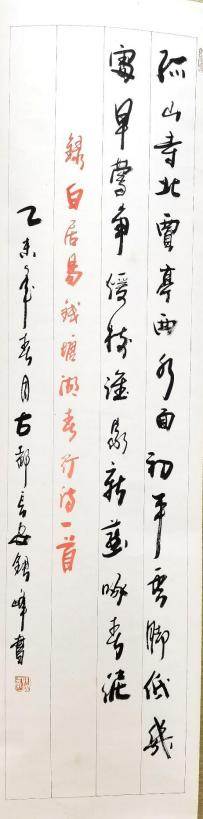 孤山寺北賈亭西水面初平雲脚低幾
處早鶯爭煖樹誰家新燕啄春泥
錄白居易錢塘湖春行詩一首
乙未年春月古都長安錦峰書